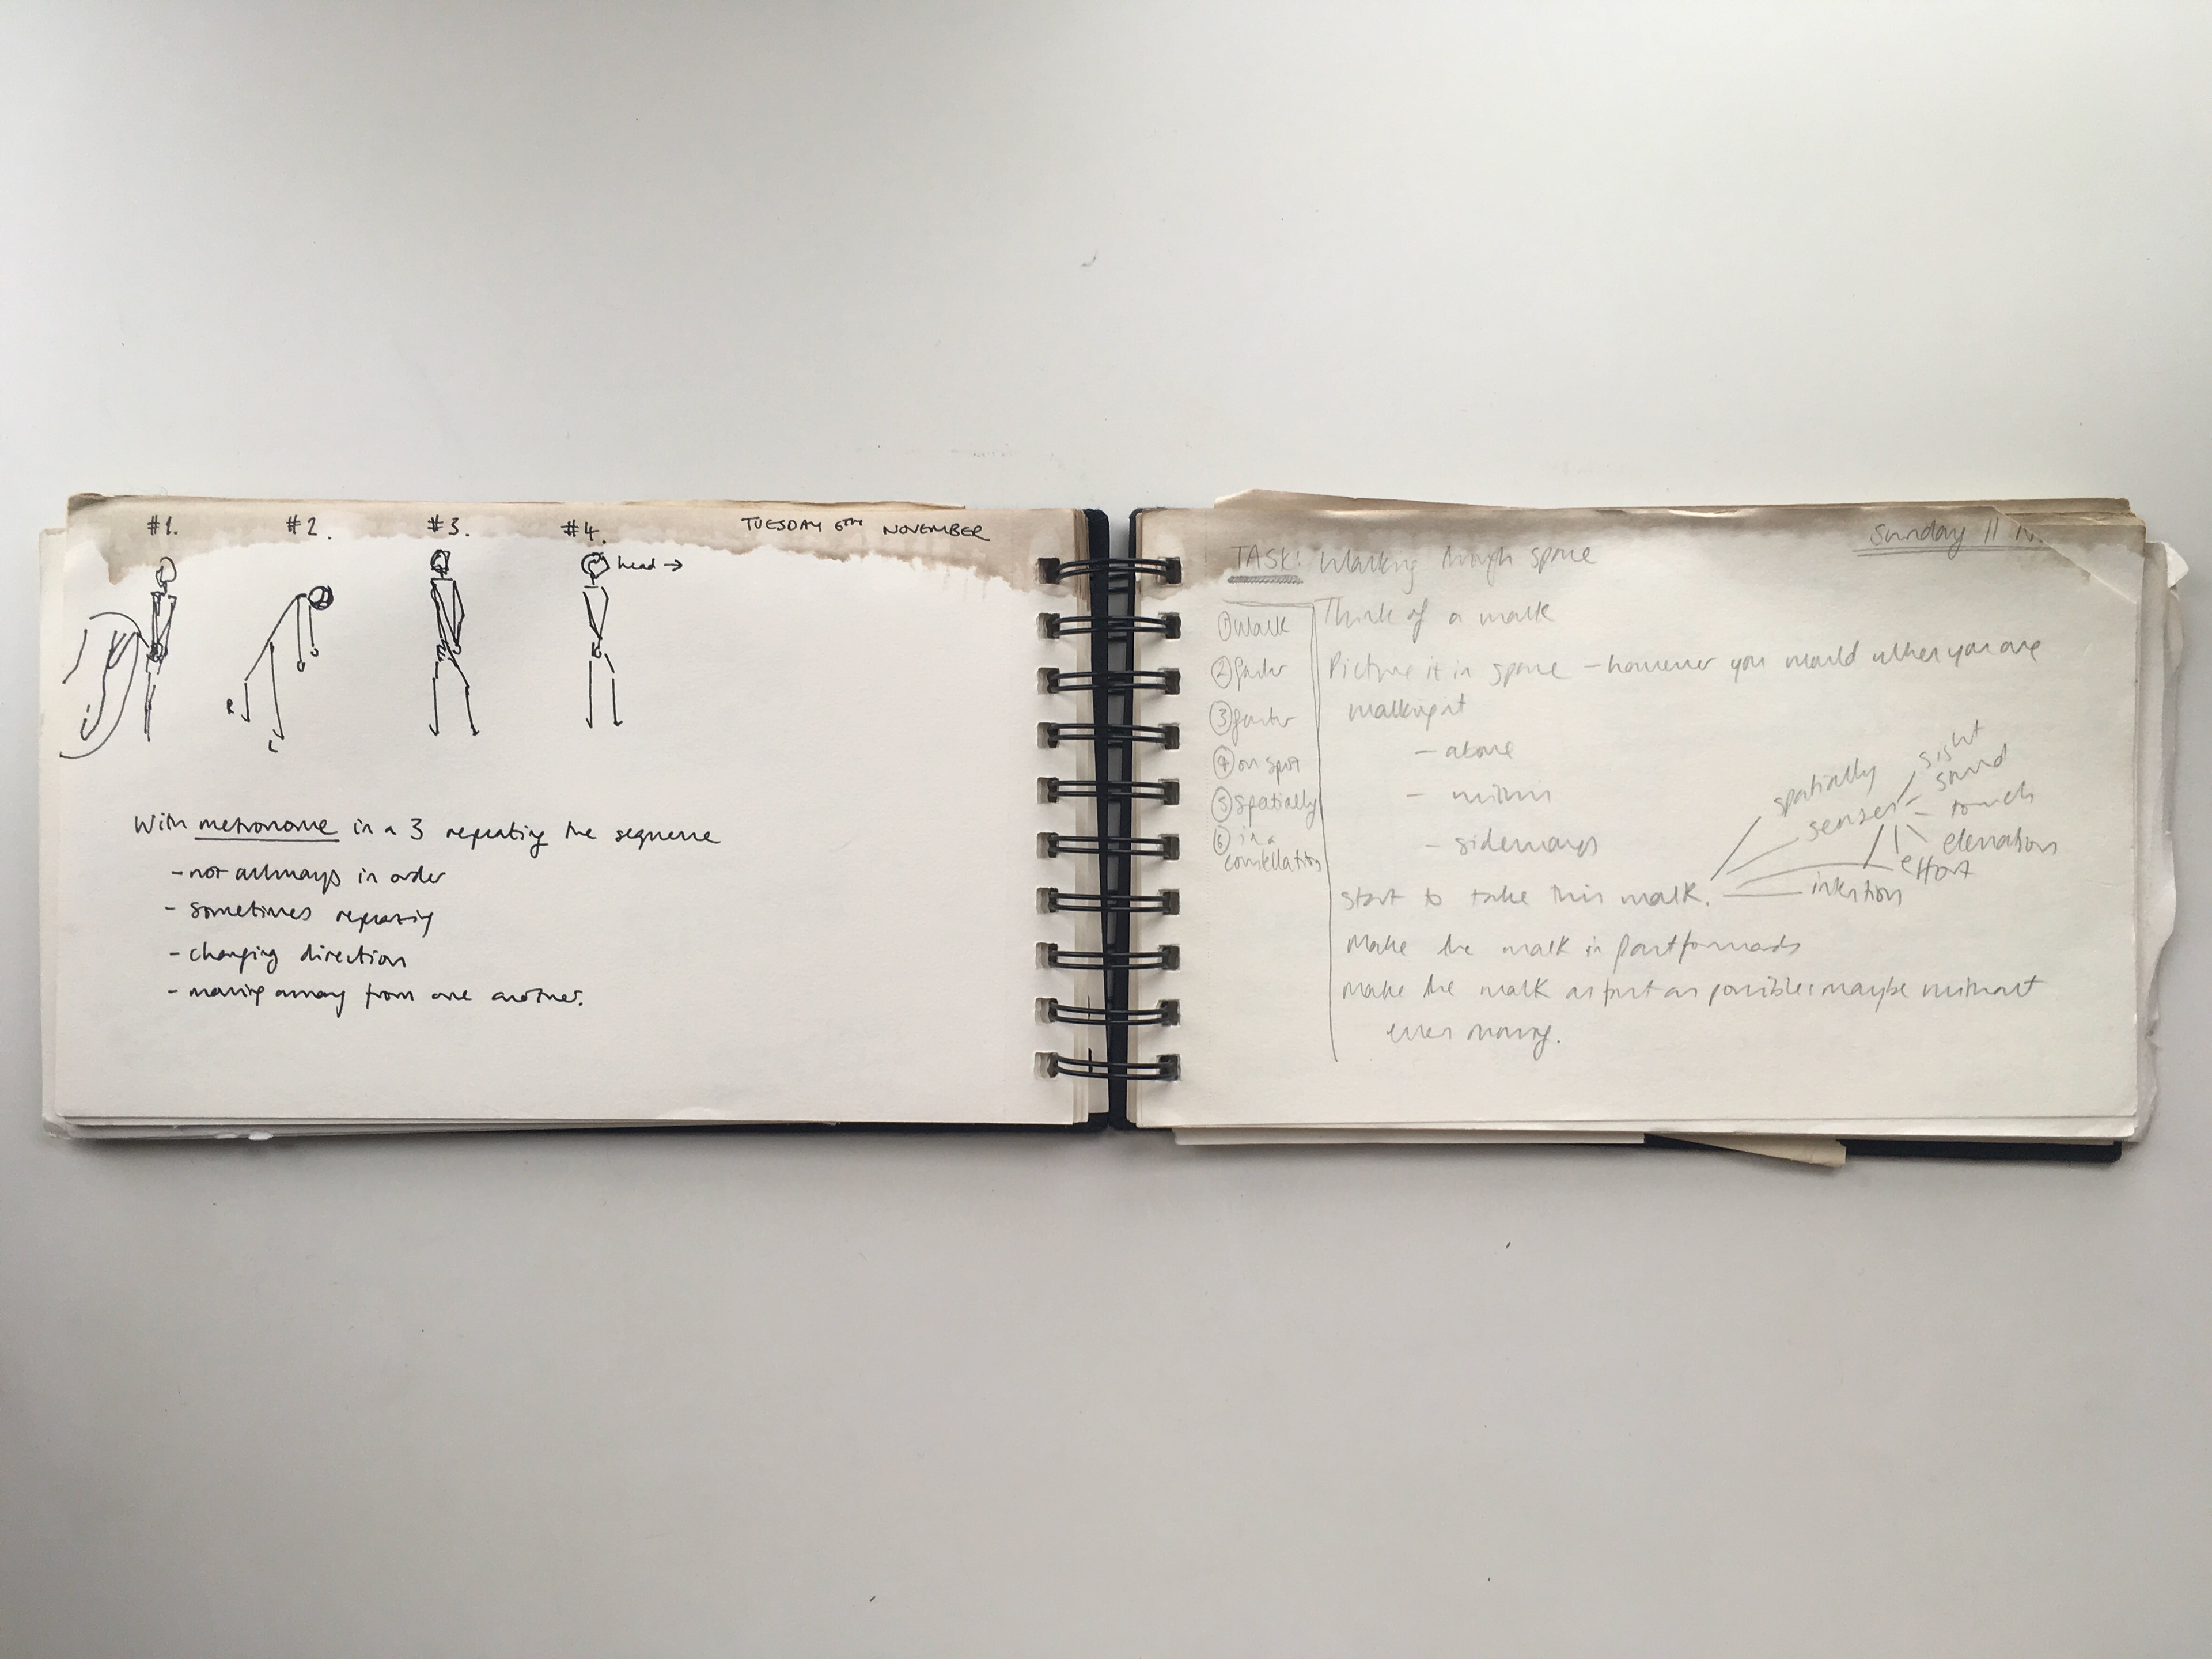 #1. #2. #3. #4. TUESDAY 6TH NOVEMBER
head →
R
L
With metronome in a 3 repeating the sequence
- not always in order
- sometimes repeating
- changing direction
- moving away from one another.
Sunday 11 N
TASK: Walking through space
① Walk
② faster
③ faster
④ on spot
⑤ spatially
⑥ in a
constellation
Think of a walk
Picture it in space - however you would when you are
walking it
- above
- within
- sideways
start to take this walk.
spatially
senses
sight
sound
touch
elevation
effort
intention
Make the walk in fast forwards
Make the walk as fast as possible: maybe without
even moving.